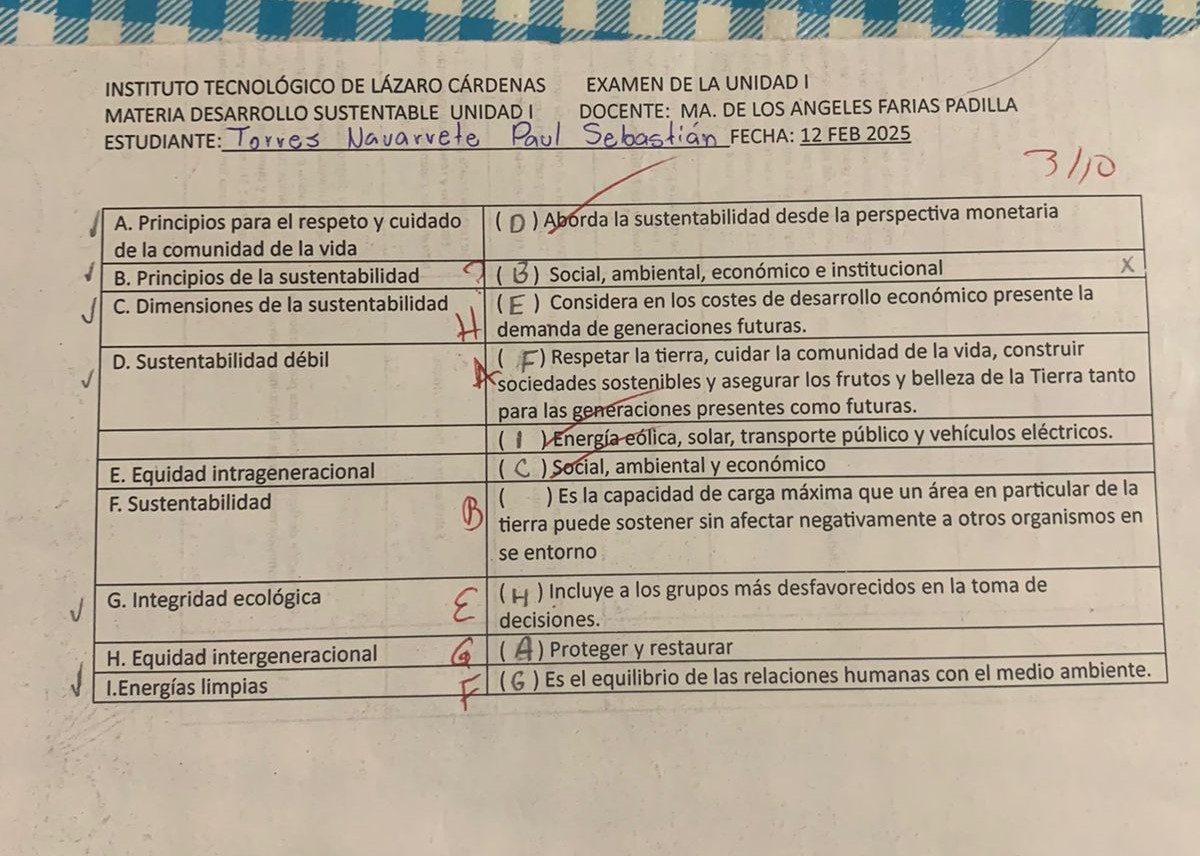 INSTITUTO TECNOLÓGICO DE LÁZARO CÁRDENAS EXAMEN DE LA UNIDAD I
MATERIA DESARROLLO SUSTENTABLE UNIDAD I DOCENTE: MA. DE LOS ANGELES FARIAS PADILLA
ESTUDIANTE: Torres Navarrete Paul Sebastián FECHA: 12 FEB 2025
3/10
A. Principios para el respeto y cuidado
de la comunidad de la vida
( D ) Aborda la sustentabilidad desde la perspectiva monetaria
B. Principios de la sustentabilidad ?
( B ) Social, ambiental, económico e institucional X
C. Dimensiones de la sustentabilidad
H
( E ) Considera en los costes de desarrollo económico presente la
demanda de generaciones futuras.
D. Sustentabilidad débil
A
( F ) Respetar la tierra, cuidar la comunidad de la vida, construir
sociedades sostenibles y asegurar los frutos y belleza de la Tierra tanto
para las generaciones presentes como futuras.
( I ) Energía eólica, solar, transporte público y vehículos eléctricos.
E. Equidad intrageneracional
( C ) Social, ambiental y económico
F. Sustentabilidad
B
( ) Es la capacidad de carga máxima que un área en particular de la
tierra puede sostener sin afectar negativamente a otros organismos en
se entorno
G. Integridad ecológica
E
( H ) Incluye a los grupos más desfavorecidos en la toma de
decisiones.
H. Equidad intergeneracional G
( A ) Proteger y restaurar
I.Energías limpias F
( G ) Es el equilibrio de las relaciones humanas con el medio ambiente.